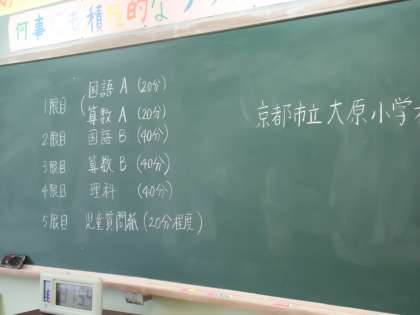 何事にも積極的な
国語A(20分)
1限目
算数A(20分)
2限目 国語B(40分)
3限目 算数B(40分)
4限目 理科 (40分)
5限目 児童質問紙(20分程度)
京都市立大原小学校